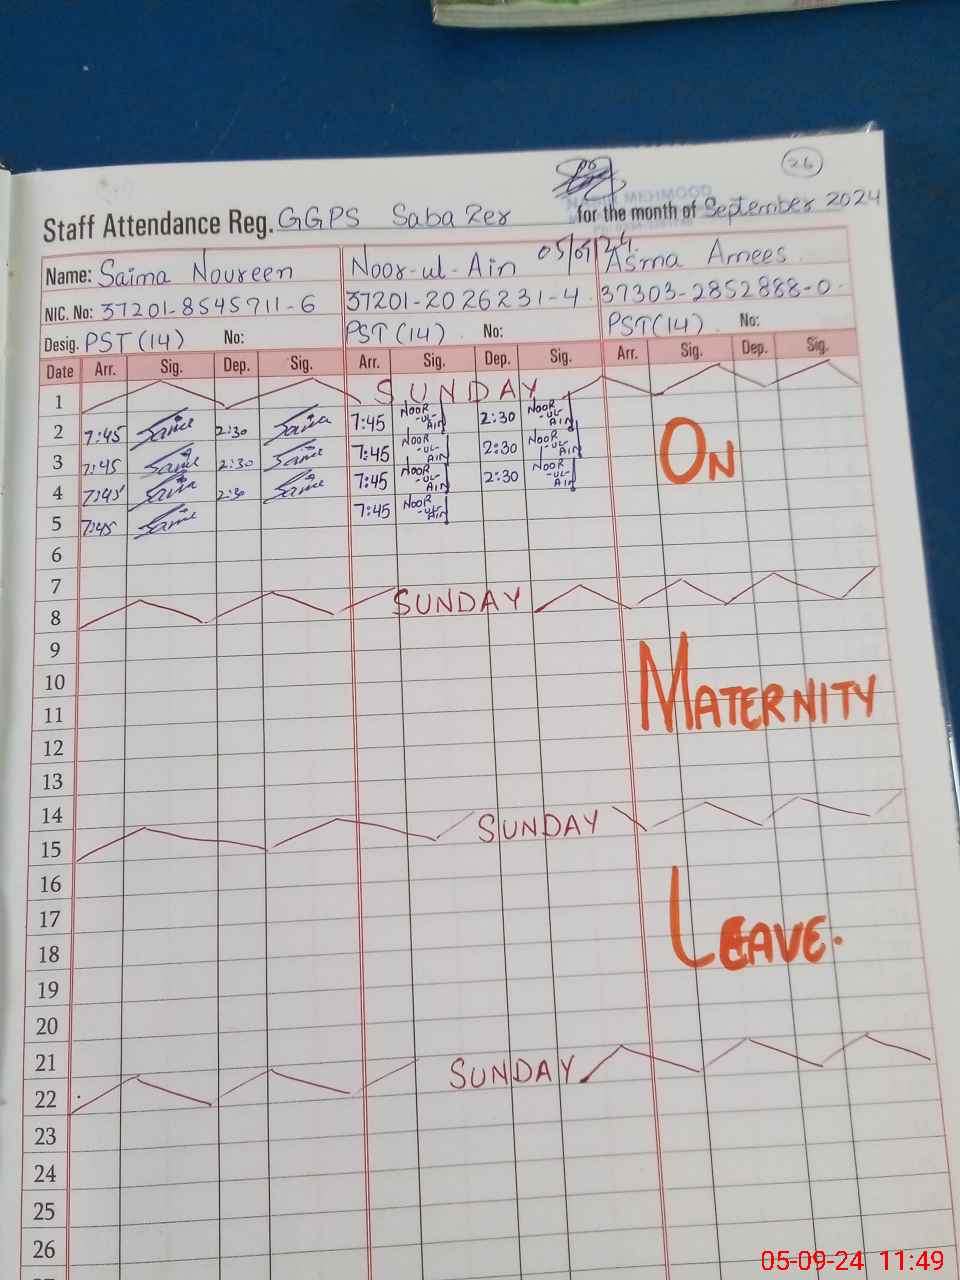 26
MEHMOOD
Staff Attendance Reg. GGPS Saba Zer for the month of September 2024
05/09/24
Name: Saima Noureen Noor-ul-Ain Asma Amees
NIC. No: 37201-8545711-6 37201-2026231-4 37303-2852888-0
Desig. PST (14) No: PST (14) No: PST (14) No:
Date Arr. Sig. Dep. Sig. Arr. Sig. Dep. Sig. Arr. Sig. Dep. Sig.
1 SUNDAY
2 7:45 Saima 2:30 Saima 7:45 NOOR -UL- AIN 2:30 NOOR -UL- AIN
3 7:45 Saima 2:30 Saima 7:45 NOOR -UL- AIN 2:30 NOOR -UL- AIN
4 7:45 Saima 2:30 Saima 7:45 NOOR -UL- AIN 2:30 NOOR -UL- AIN
5 7:45 Saima 7:45 NOOR -UL- AIN
ON
6
7
8 SUNDAY
9
10
11
MATERNITY
12
13
14
15 SUNDAY
16
17
18
LEAVE.
19
20
21
22 SUNDAY
23
24
25
26
05-09-24 11:49